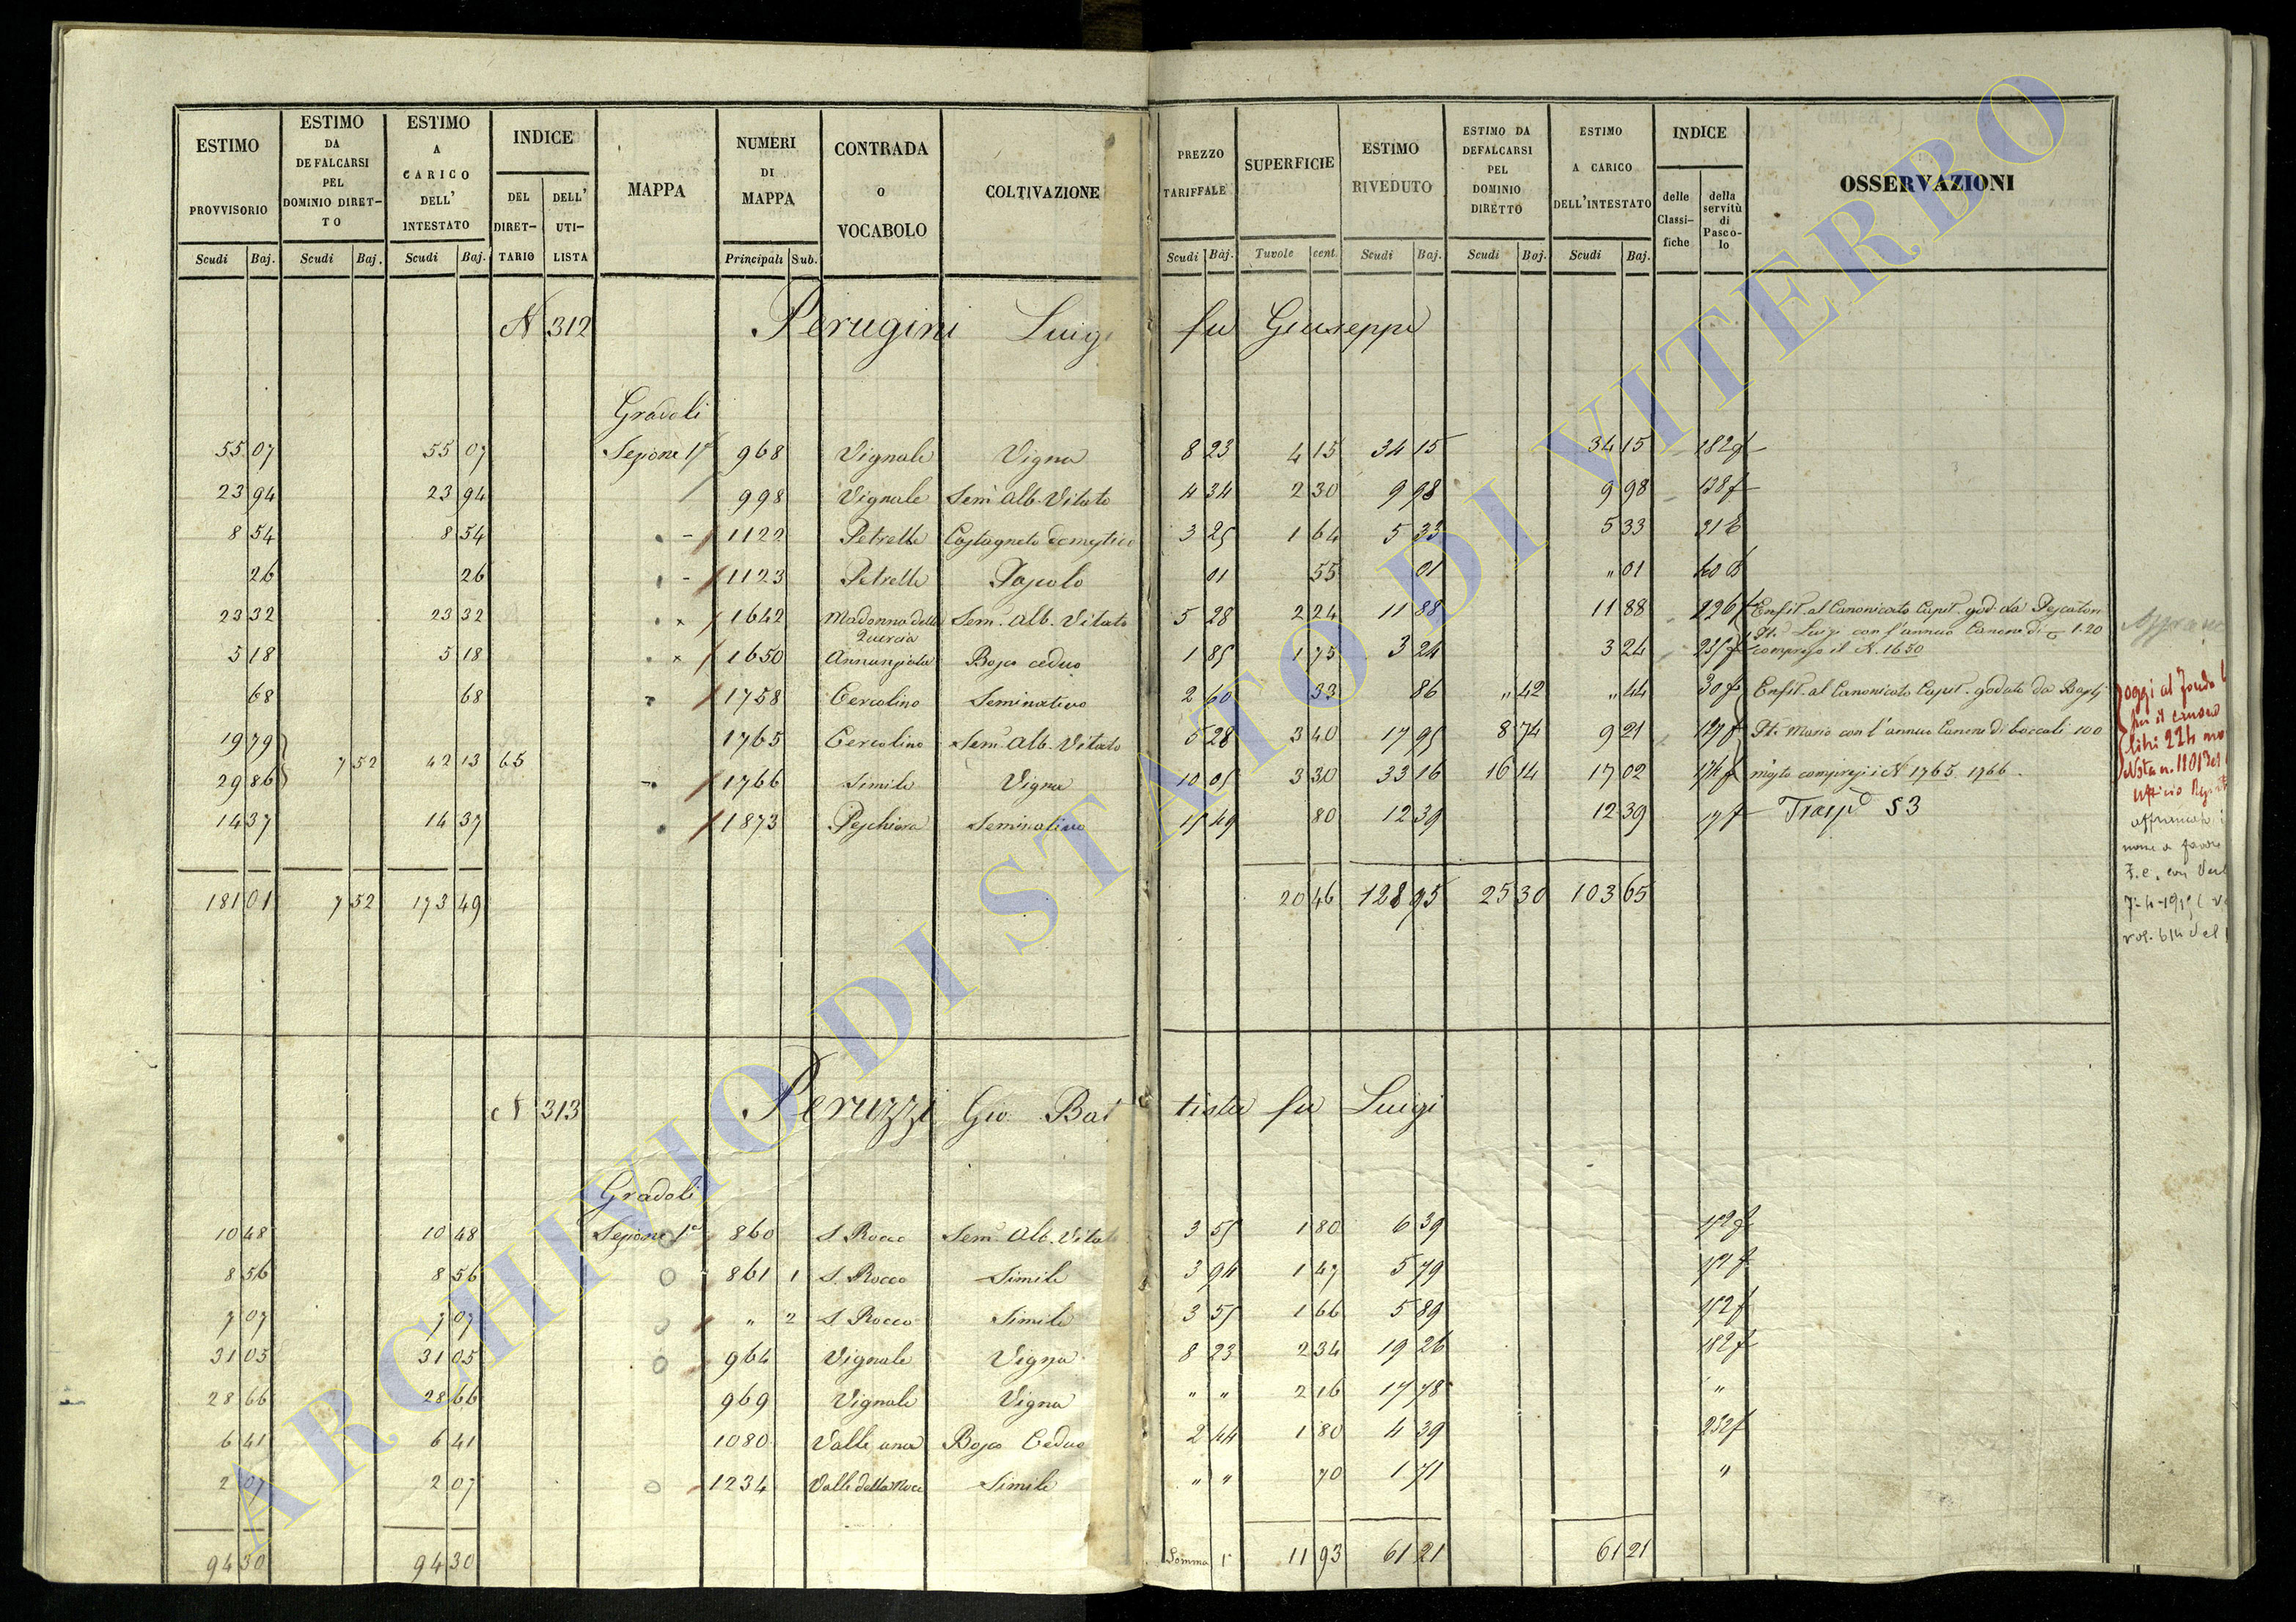 ESTIMO PROVVISORIO Scudi Baj.
ESTIMO DA DEFALCARSI PEL DOMINIO DIRETTO Scudi Baj.
ESTIMO A CARICO DELL' INTESTATO Scudi Baj.
INDICE DEL DIRETTARIO DELL' UTILISTA
MAPPA
NUMERI DI MAPPA Principali Sub.
CONTRADA o VOCABOLO
COLTIVAZIONE
PREZZO TARIFFALE Scudi Baj.
SUPERFICIE Tavole cent.
ESTIMO RIVEDUTO Scudi Baj.
ESTIMO DA DEFALCARSI PEL DOMINIO DIRETTO Scudi Baj.
ESTIMO A CARICO DELL'INTESTATO Scudi Baj.
INDICE delle Classifiche della servitù di Pascolo
OSSERVAZIONI
N 312 Perugini Luigi fu Giuseppe
Gradoli
55 07 55 07 Sezione 1ª 968 Vignale Vigna 8 23 4 15 34 15 34 15 182 f
23 94 23 94 998 Vignale Sem. Alb. Vitato 4 34 2 30 9 98 9 98 138 f
8 54 8 54 1122 Petrelle Castagneto domestico 3 25 1 64 5 33 5 33
26 26 1123 Petrelle Pascolo 01 55 01 " 01
23 32 23 32 1642 Madonna della Quercia Sem. Alb. Vitato 5 28 2 24 11 88 11 88 Enfit. al Canonicato Capit. god. da
Luigi con l'annuo Canone di 1.20
5 18 5 18 1650 Annunziata Bosco ceduo 1 85 1 75 3 24 3 24 compreso il N. 1650
68 68 1758 Cercolino Seminativo 2 60 33 86 " 42 " 44 30 f Enfit. al Canonicato Capit. goduto da
19 79 1765 Cercolino Sem. Alb. Vitato 5 28 3 40 17 95 8 74 9 21 Mario con l'annuo Canone di boccali 100
7 52 42 13 65
29 86 1766 Simile Vigna 10 05 3 30 33 16 16 14 17 02 174 f mosto compresi i N. 1765. 1766.
14 37 14 37 1873 Peschiera Seminativo 15 49 80 12 39 12 39 Trasp. 53
181 01 7 52 173 49 20 46 128 95 25 30 103 65
oggi al fondo
litri 224
Nota n.
Ufficio
N 313 Peruzzi Gio. Battista fu Luigi
Gradoli
10 48 10 48 Sezione 1ª 860 S. Rocco Sem. Alb. Vitato 3 55 1 80 6 39 152 f
8 56 8 56 861 1 S. Rocco Simile 3 94 1 47 5 79
7 07 7 07 " 2 S. Rocco Simile 3 55 1 66 5 89 152 f
31 05 31 05 964 Vignale Vigna 8 23 2 34 19 26 182 f
28 66 28 66 969 Vignale Vigna " " 2 16 17 78 "
6 41 6 41 1080 Bosco Ceduo 2 44 1 80 4 39 232 f
2 07 2 07 1234 Valle della Noce Simile " " 70 1 71 "
94 30 94 30 Somma 11 93 61 21 61 21
ARCHIVIO DI STATO DI VITERBO